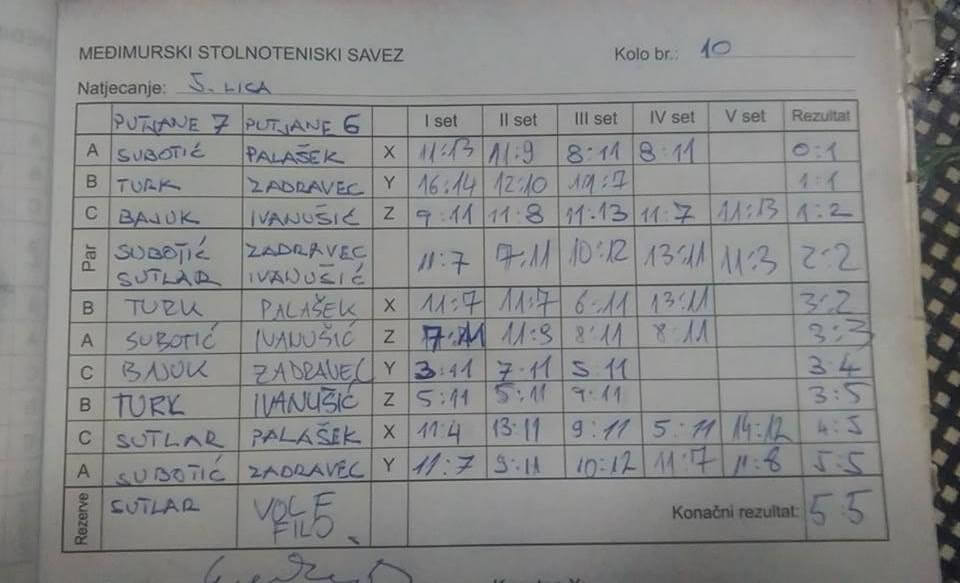 MEĐIMURSKI STOLNOTENISKI SAVEZ Kolo br.: 10
Natjecanje: J. LICA
PUTJANE 7 PUTJANE 6 I set II set III set IV set V set Rezultat
A SUBOTIĆ PALAŠEK X 11:13 11:9 8:11 8:11 0:1
B TURK ZADRAVEC Y 16:14 12:10 11:7 1:1
C BAJUK IVANUŠIĆ Z 9:11 11:8 11:13 11:7 11:13 1:2
Par SUBOTIĆ ZADRAVEC 11:7 7:11 10:12 13:11 11:3 2:2
SUTLAR IVANUŠIĆ
B TURK PALAŠEK X 11:7 11:7 6:11 13:11 3:2
A SUBOTIĆ IVANUŠIĆ Z 7:11 11:9 8:11 8:11 3:3
C BAJUK ZADRAVEC Y 3:11 7:11 5:11 3:4
B TURK IVANUŠIĆ Z 5:11 5:11 9:11 3:5
C SUTLAR PALAŠEK X 11:4 13:11 9:11 5:11 14:12 4:5
A SUBOTIĆ ZADRAVEC Y 11:7 9:11 10:12 11:7 11:8 5:5
Rezerve SUTLAR VOLF Konačni rezultat: 5:5
FILO